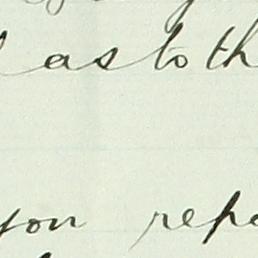 as to th
you repo